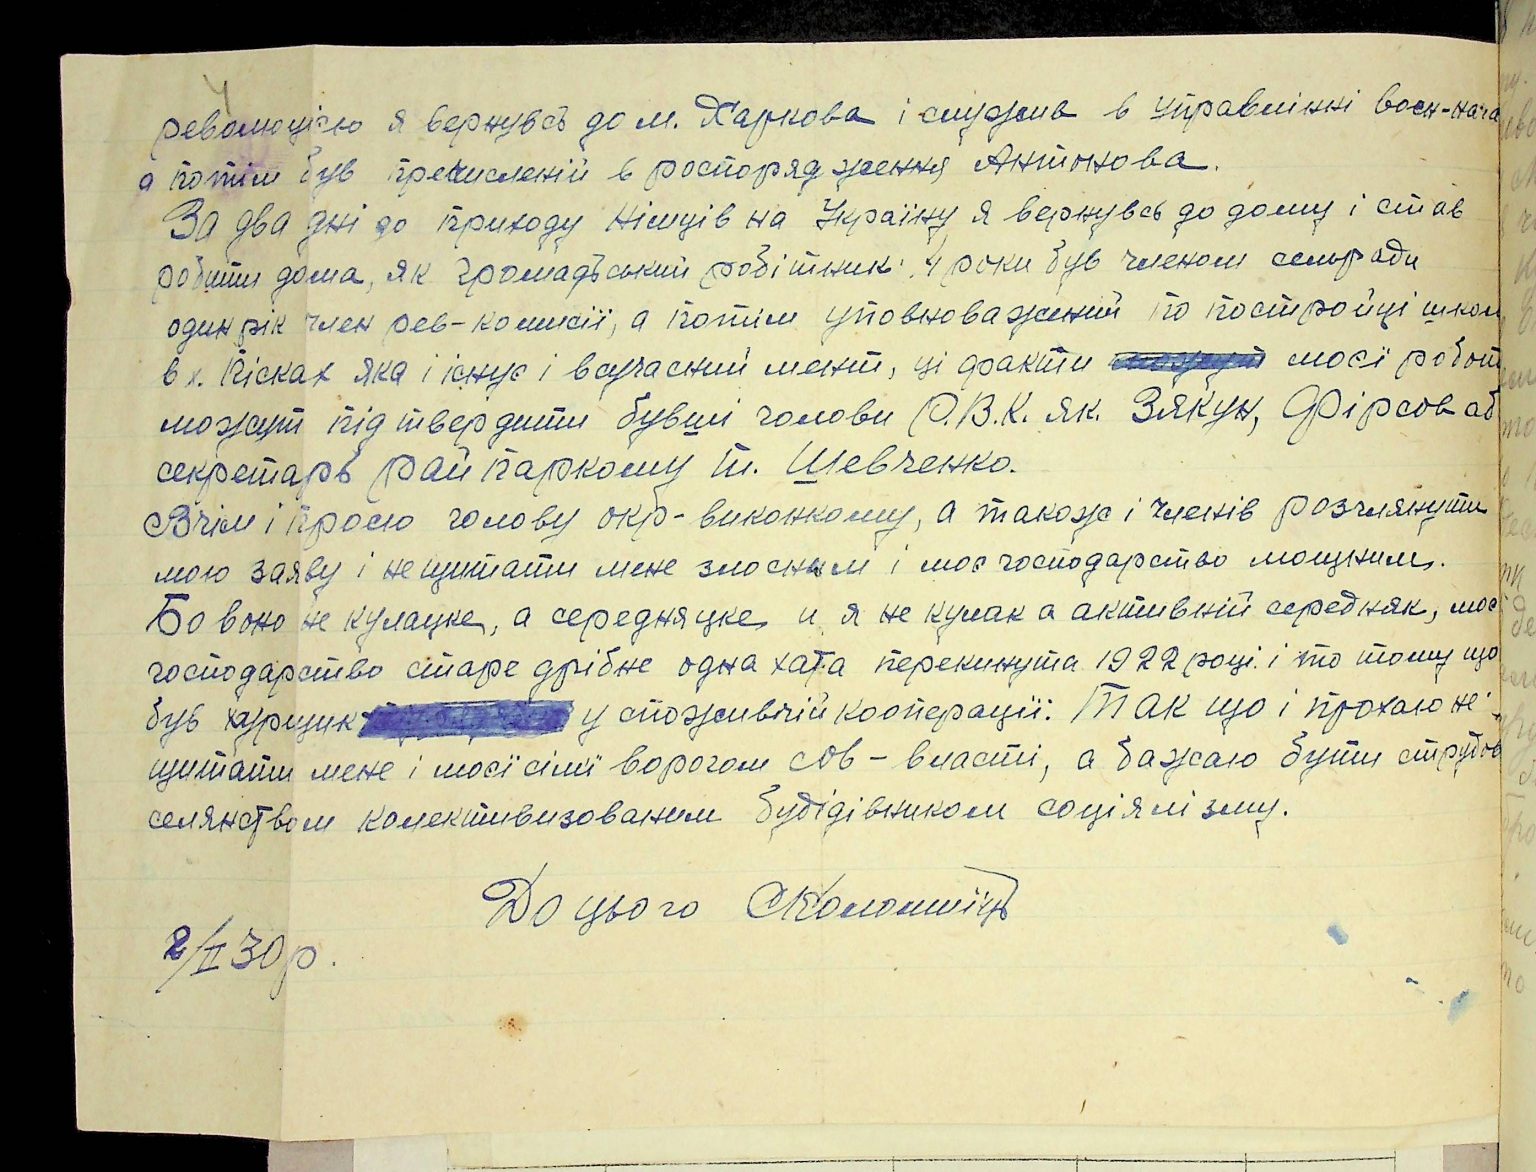 революцією я вернувсь до м. Харкова і служив в управлінні воєн-нача
а потім був пречисленій в роспорядження Антонова.
За два дні до приходу німців на Україну я вернувсь до дому і став
робити дома, як громадський робітник. 4 роки був членом сельради
один рік член рев-комисії, а потім уповноважений по постройці школи
в х. Пісках яка і існує і всучасний мент, ці факти моєї робот
можут підтвердити бувші голови Р.В.К. як. Зякун, Фірсов аб
секретарь райпаркому т. Шевченко.
Вчім і прошу голову окр-виконкому, а також і членів розглянути
мою заяву і не щитати мене злосним і моє господарство мощним.
Бо воно не кулацке, а середняцке и я не кулак а активній середняк, моє
господарство старе дрібне одна хата перекинута 1922 році і то тому що
був у споживчій кооперації. Так що і прохаю не
щитати мене і моєї сімї ворогом сов-власті, а бажаю бути струдов
селянством колективизованим будідівником соціялізму.
До цього СКоломиїць
2/II 30р.